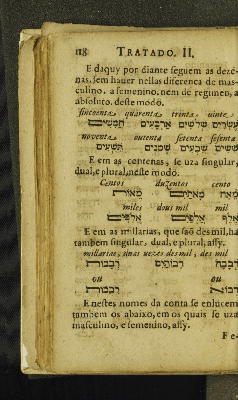 118 TRATADO. II.
E daquy por diante seguem as dezé-
nas, sem hauer nellas diferença de mas-
culino, a femenino, nem de regimen, a
absoluto. deste modo.
sincoenta quarenta trinta uinte
עֶשְׂרִים שְׁלֹשִׁים אַרְבָּעִים חֲמִשִּׁים
noventa outenta setenta sesenta
שִׁשִּׁים שִׁבְעִים שְׁמֹנִים תִּשְׁעִים
E em as centenas, se uza singular,
dual, e plural, neste modo.
Centos duzentos cento
מֵאָה מָאתַיִם מֵאוֹת
miles dous mil mil
אֶלֶף אַלְפַּיִם אֲלָפִים
E em as miliarias, que saõ des mil, ha
tambem singular, dual, e plural, assy.
miliarias, duas vezes des mil, des mil
רְבָבָה רִבּוֹתַיִם רְבָבוֹת
ou ou
E nestes nomes da conta se enlucem
tambem os abaixo, em os quais se uza
masculino, e femenino, assy.
Fe-